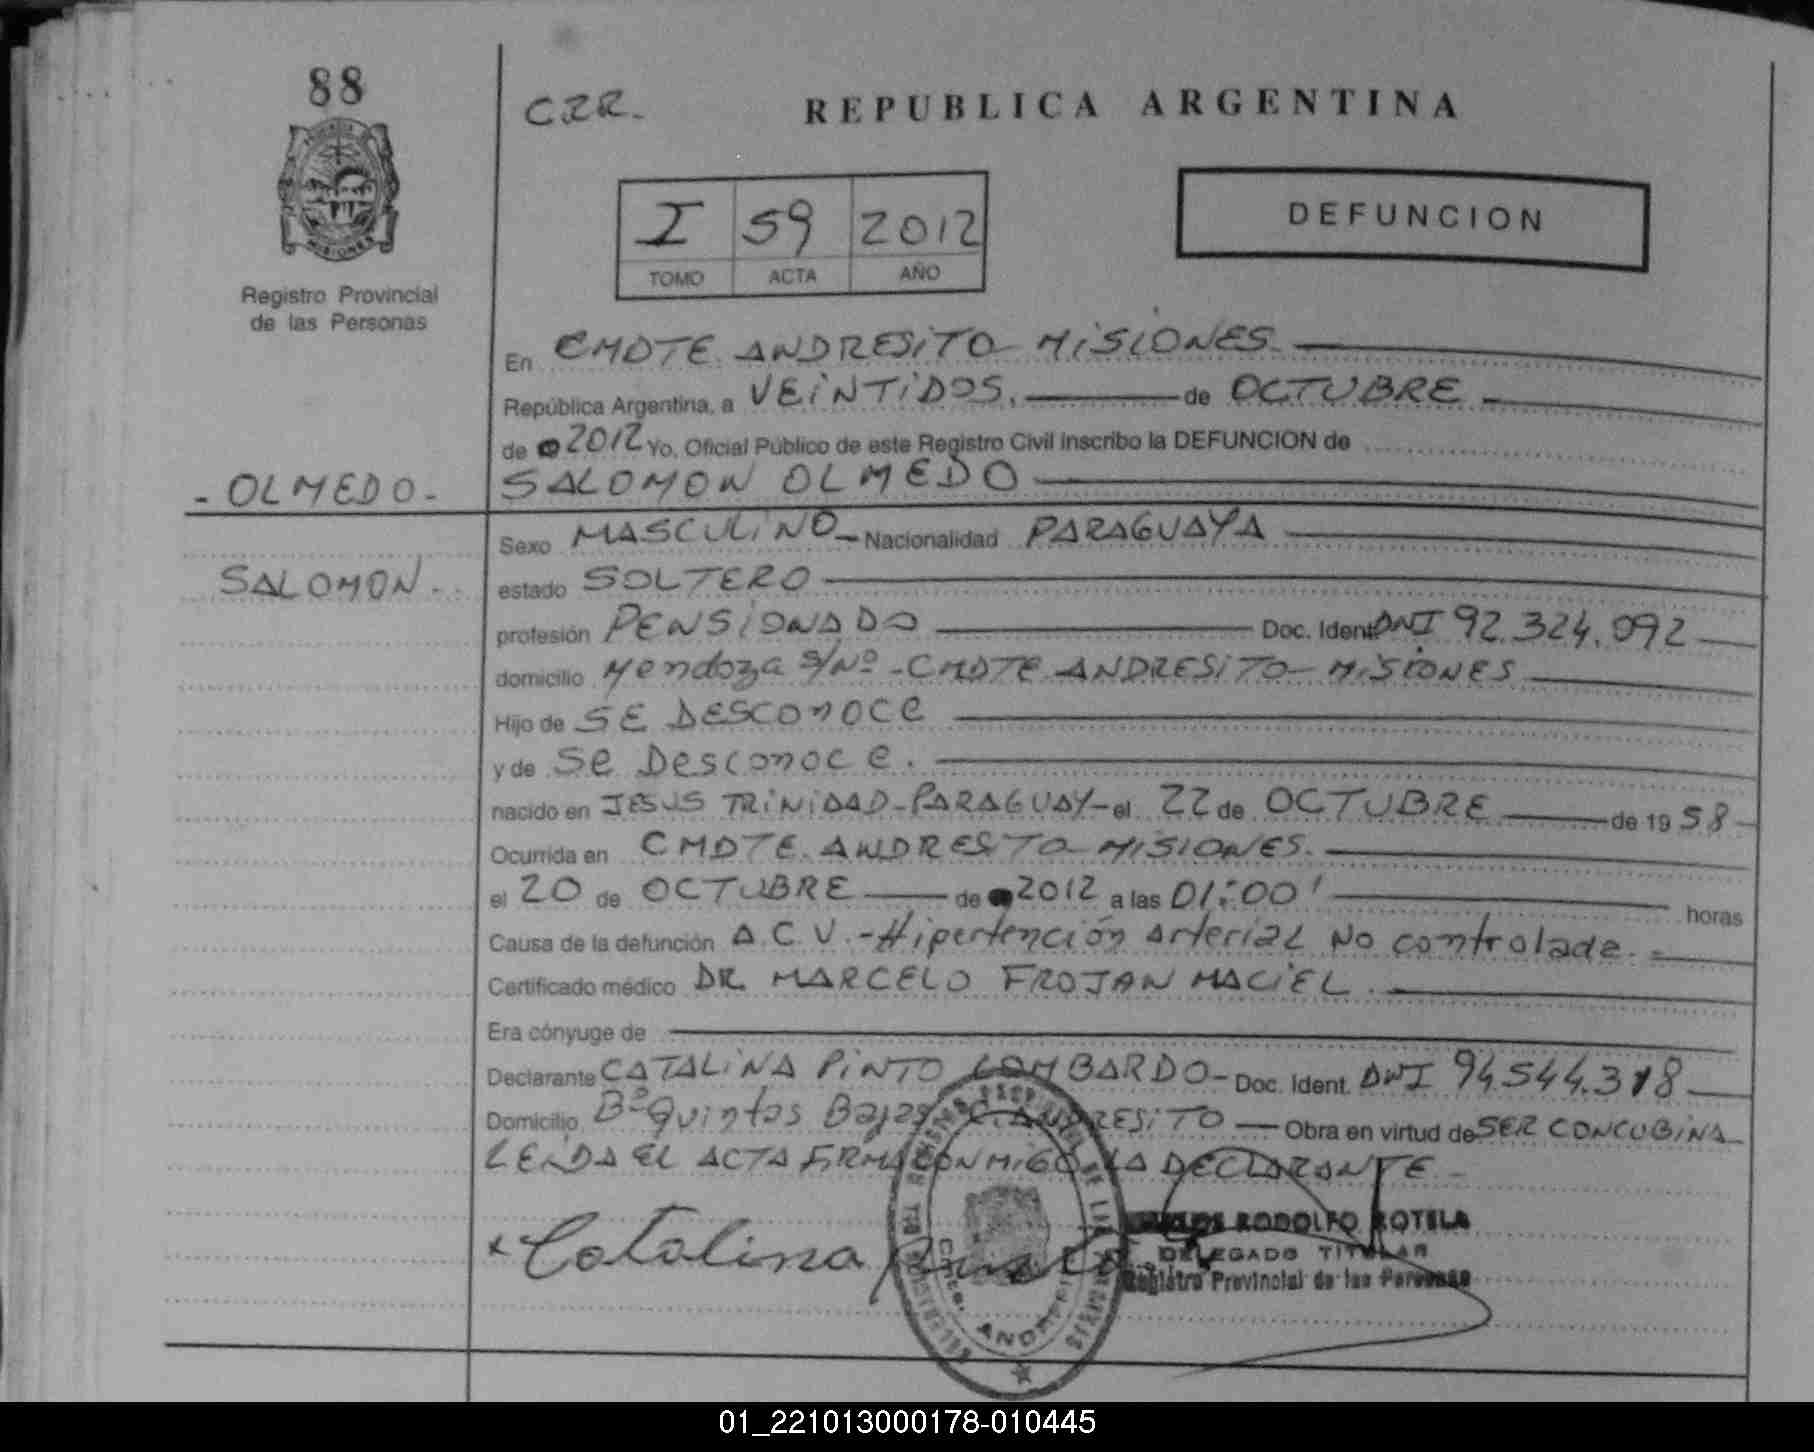 88
CZR.
REPUBLICA ARGENTINA
I 59 2012
TOMO ACTA AÑO
DEFUNCION
MISIONES
Registro Provincial
de las Personas
En CMDTE ANDRESiTO MiSiONES
República Argentina, a VEiNTiDOS. de OCTUBRE
de 2012 Yo, Oficial Público de este Registro Civil inscribo la DEFUNCION de
- OLMEDO - SALOMON OLMEDO
Sexo MASCULiNO Nacionalidad PARAGUAYA
SALOMON. estado SOLTERO
profesión PENSiONADO Doc. Ident. DNI 92.324.092
domicilio Mendoza S/Nº - CMDTE ANDRESiTO MiSiONES
Hijo de SE DESCONOCE
y de Se Desconoce.
nacido en JESUS TRiNiDAD - PARAGUAY - el 22 de OCTUBRE de 19 58
Ocurrida en CMDTE. ANDRESiTO MiSiONES.
el 20 de OCTUBRE de 2012 a las 01:00' horas
Causa de la defunción A.C.V. - Hipertención arterial No controlada.
Certificado médico DR. MARCELO FROJAN MACiEL.
Era cónyuge de
Declarante CATALiNA PiNTO LOMBARDO - Doc. Ident. DNI 94.544.318
Domicilio Bº Quintas Bajas C. ANDRESiTO Obra en virtud de SER CONCUBiNA
LEiDA EL ACTA FiRMA CONMiGO LA DECLARANTE.
x Catalina Pinto
RODOLFO ROTELA
DELEGADO TITULAR
Registro Provincial de las Personas
01_221013000178-010445